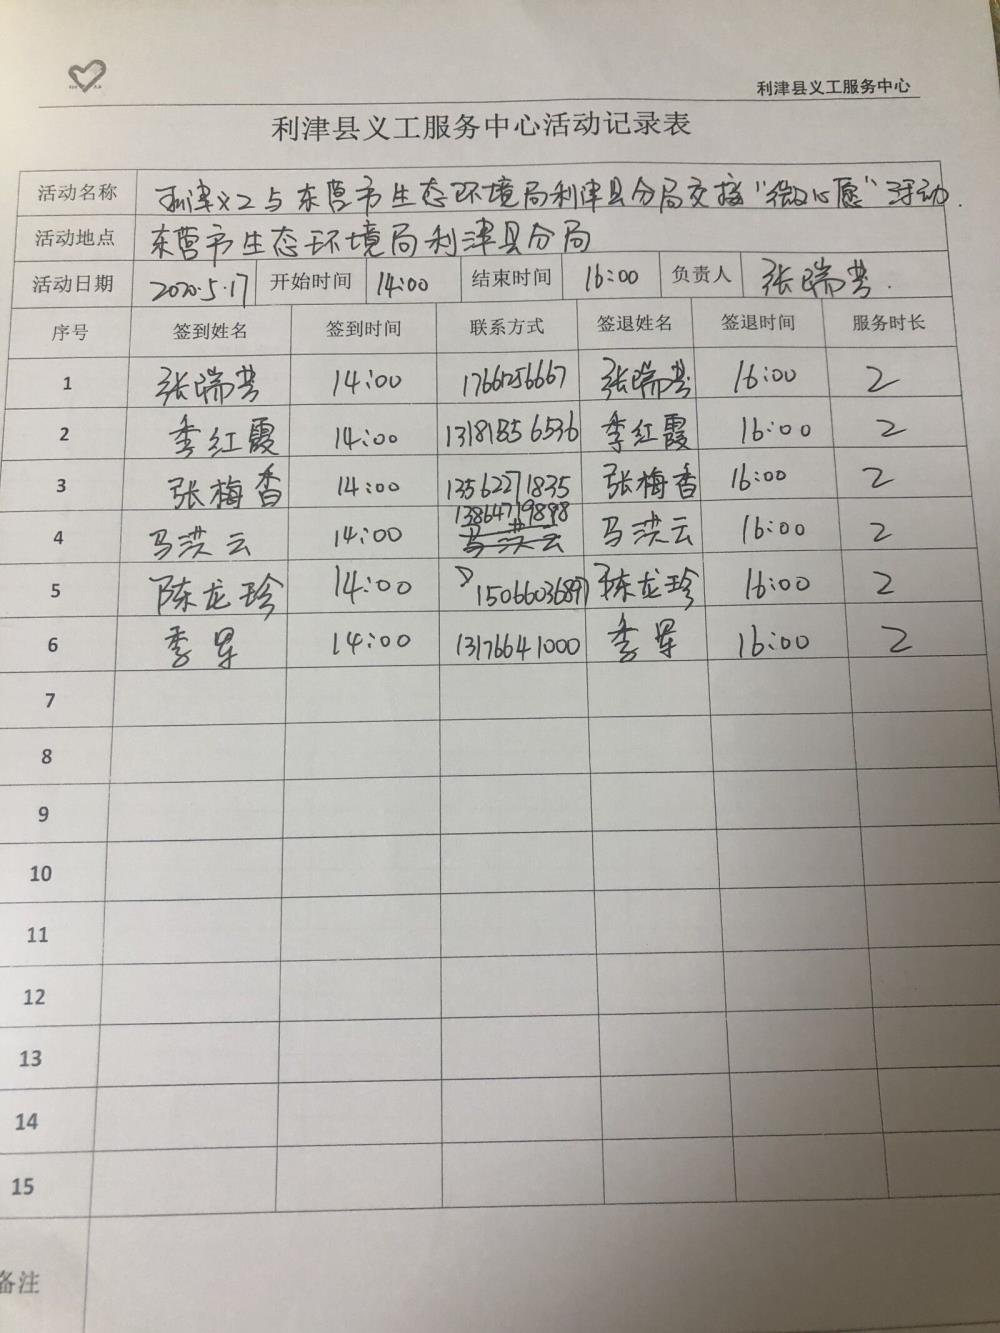 利津县义工服务中心
利津县义工服务中心活动记录表
活动名称 利津义工与东营市生态环境局利津县分局交接“微心愿”活动.
活动地点 东营市生态环境局利津县分局
活动日期 2020.5.17 开始时间 14:00 结束时间 16:00 负责人 张瑞芸.
序号 签到姓名 签到时间 联系方式 签退姓名 签退时间 服务时长
1 张瑞芸 14:00 17661256667 张瑞芸 16:00 2
2 季红霞 14:00 13181856536 季红霞 16:00 2
3 张梅香 14:00 13562271835 张梅香 16:00 2
13864719898
4 马洪云 14:00 马洪云 马洪云 16:00 2
5 陈龙珍 14:00 15066036897 陈龙珍 16:00 2
6 季军 14:00 13176641000 季军 16:00 2
7
8
9
10
11
12
13
14
15
备注